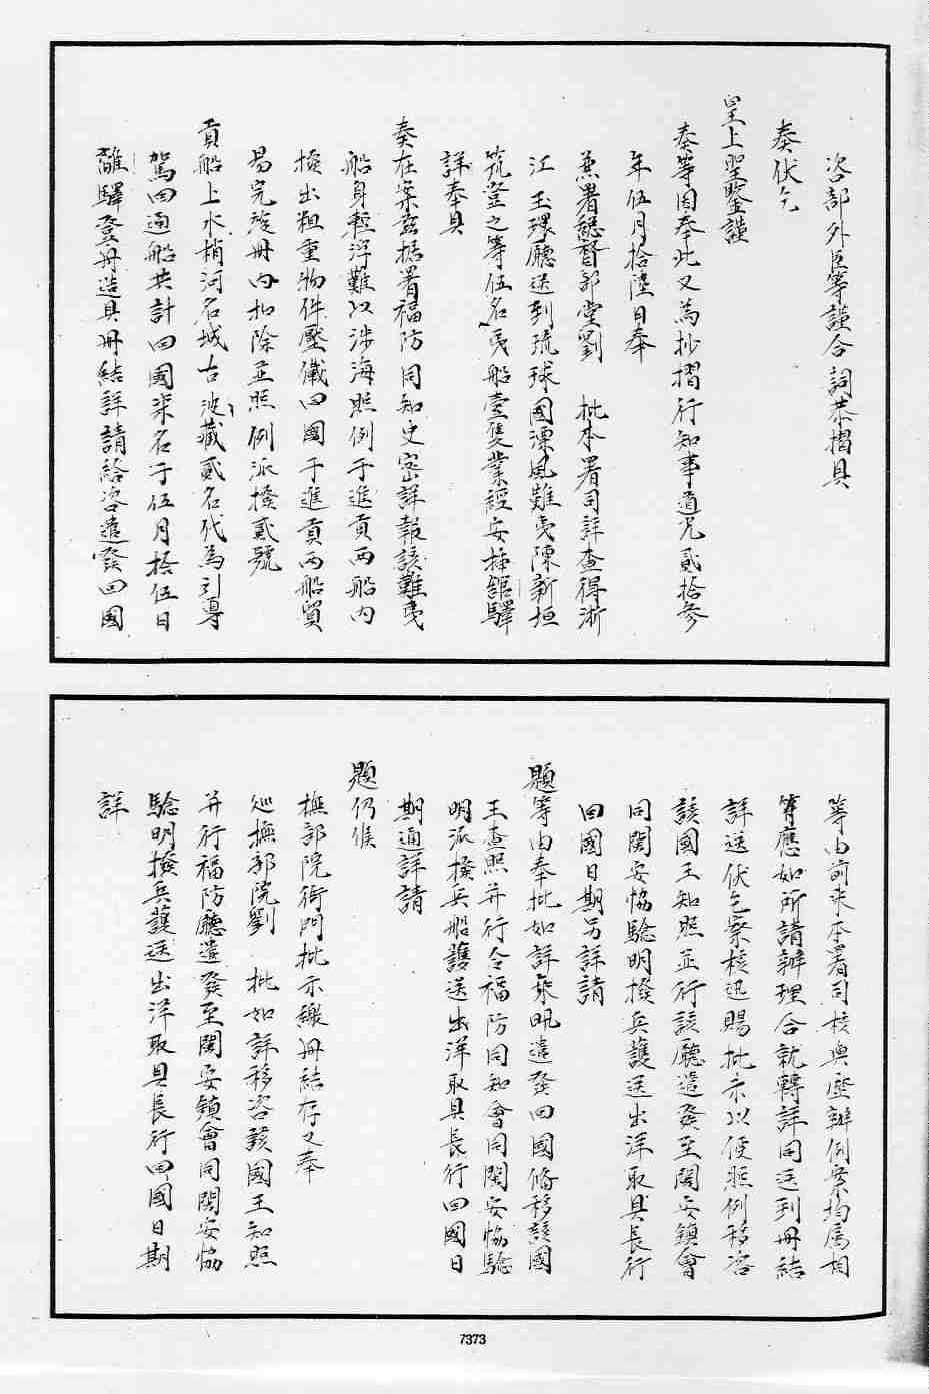 咨部外臣等謹合詞恭摺具
奏伏乞
皇上聖鑒謹
奏等因奉此又為抄摺行知事道光貳拾參
年伍月拾陸日奉
兼署總督部堂劉 批本署司詳查得浙
江玉環廳送到琉球國漂風難夷陳新垣
筑登之等伍名夷船壹隻業經安插館驛
詳奉具
奏在案茲據署福防同知史密詳報該難夷
船身輕浮難以涉海照例于進貢兩船內
撥出粗重物件壓儎回國于進貢兩船貿
易完竣冊內扣除並照例派撥貳號
貢船上水梢河名城古波藏貳名代為引導
駕回通船共計回國柒名于伍月拾伍日
離驛登舟造具冊結詳請給咨遣發回國
等由前來本署司核與歷辦例案均屬相
符應如所請辦理合就轉詳同送到冊結
詳送伏乞察核迅賜批示以便照例移咨
該國王知照並行該廳遣發至閩安鎮會
同閩安協驗明撥兵護送出洋取具長行
回國日期另詳請
題等由奉批如詳飭遣發回國偹移該國
王查照并行令福防同知會同閩安協驗
明派撥兵船護送出洋取具長行回國日
期通詳請
題仍候
撫部院衙門批示繳冊結存又奉
巡撫部院劉 批如詳移咨該國王知照
并行福防廳遣發至閩安鎮會同閩安協
驗明撥兵護送出洋取具長行回國日期
詳
7373